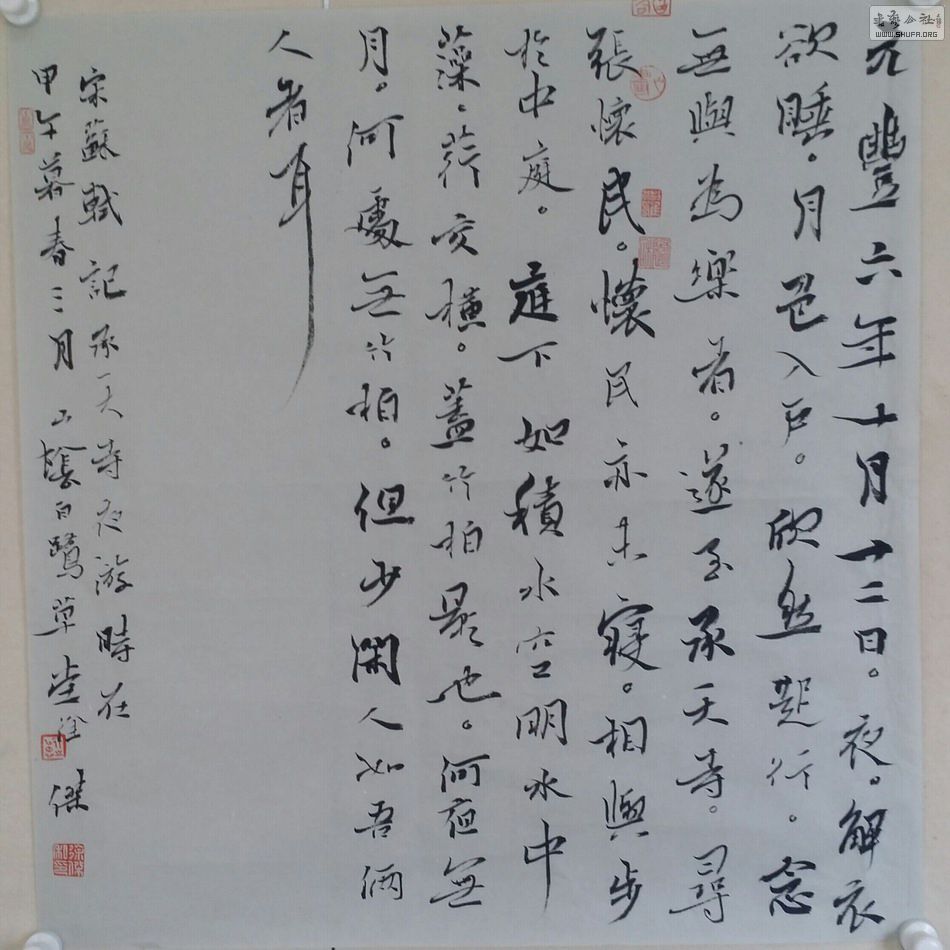 元豐六年十月十二日。夜。解衣
欲睡。月色入戶。欣然起行。念
無與為樂者。遂至承天寺。尋
張懷民。懷民亦未寢。相與步
於中庭。庭下如積水空明水中
藻、荇交橫。蓋竹柏影也。何夜無
月。何處無竹柏。但少閑人如吾倆
人者耳
宋蘇軾記承天寺夜游時在
甲午暮春三月山陰白鷺草堂徐傑
書法公社
WWW.SHUFA.ORG